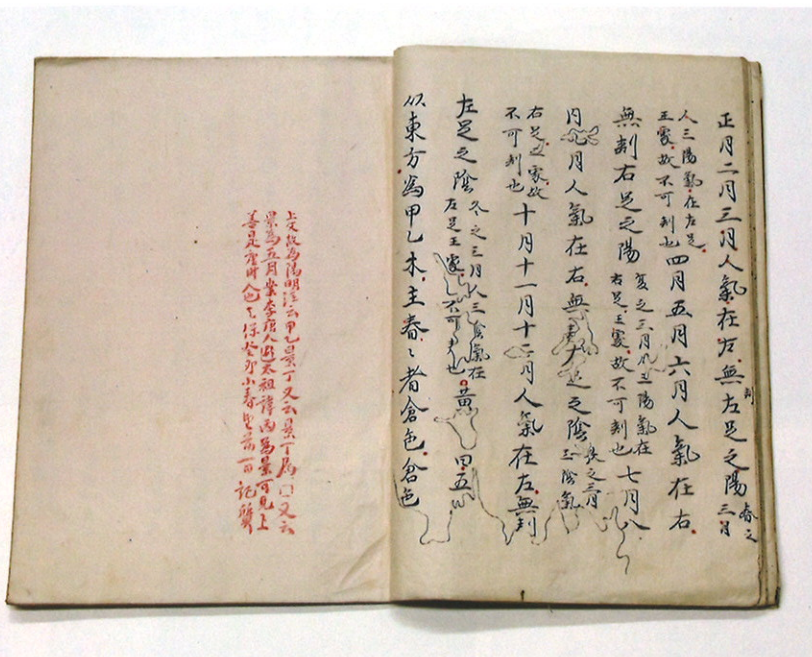 正月二月三月人氣在左無刺左足之陽春之三月
人三陽氣在左足
王處故不可刺也四月五月六月人氣在右
無刺右足之陽夏之三月人三陽氣在
右足王處故不可刺也七月八
月九月人氣在右無足之陰秋之三月
三陰氣
右足王處故
不可刺也十月十一月十二月人氣在左無刺
左足之陰冬之三月人三陰氣在
左足王處不可也黃甲五
以東方為甲乙木主春〻者倉色倉色
上文故為陽明注云甲乙景丁又云景丁為又云
景為五月案李唐人避太祖諱丙為景可見上
善是唐時人也癸卯小春望前一日記